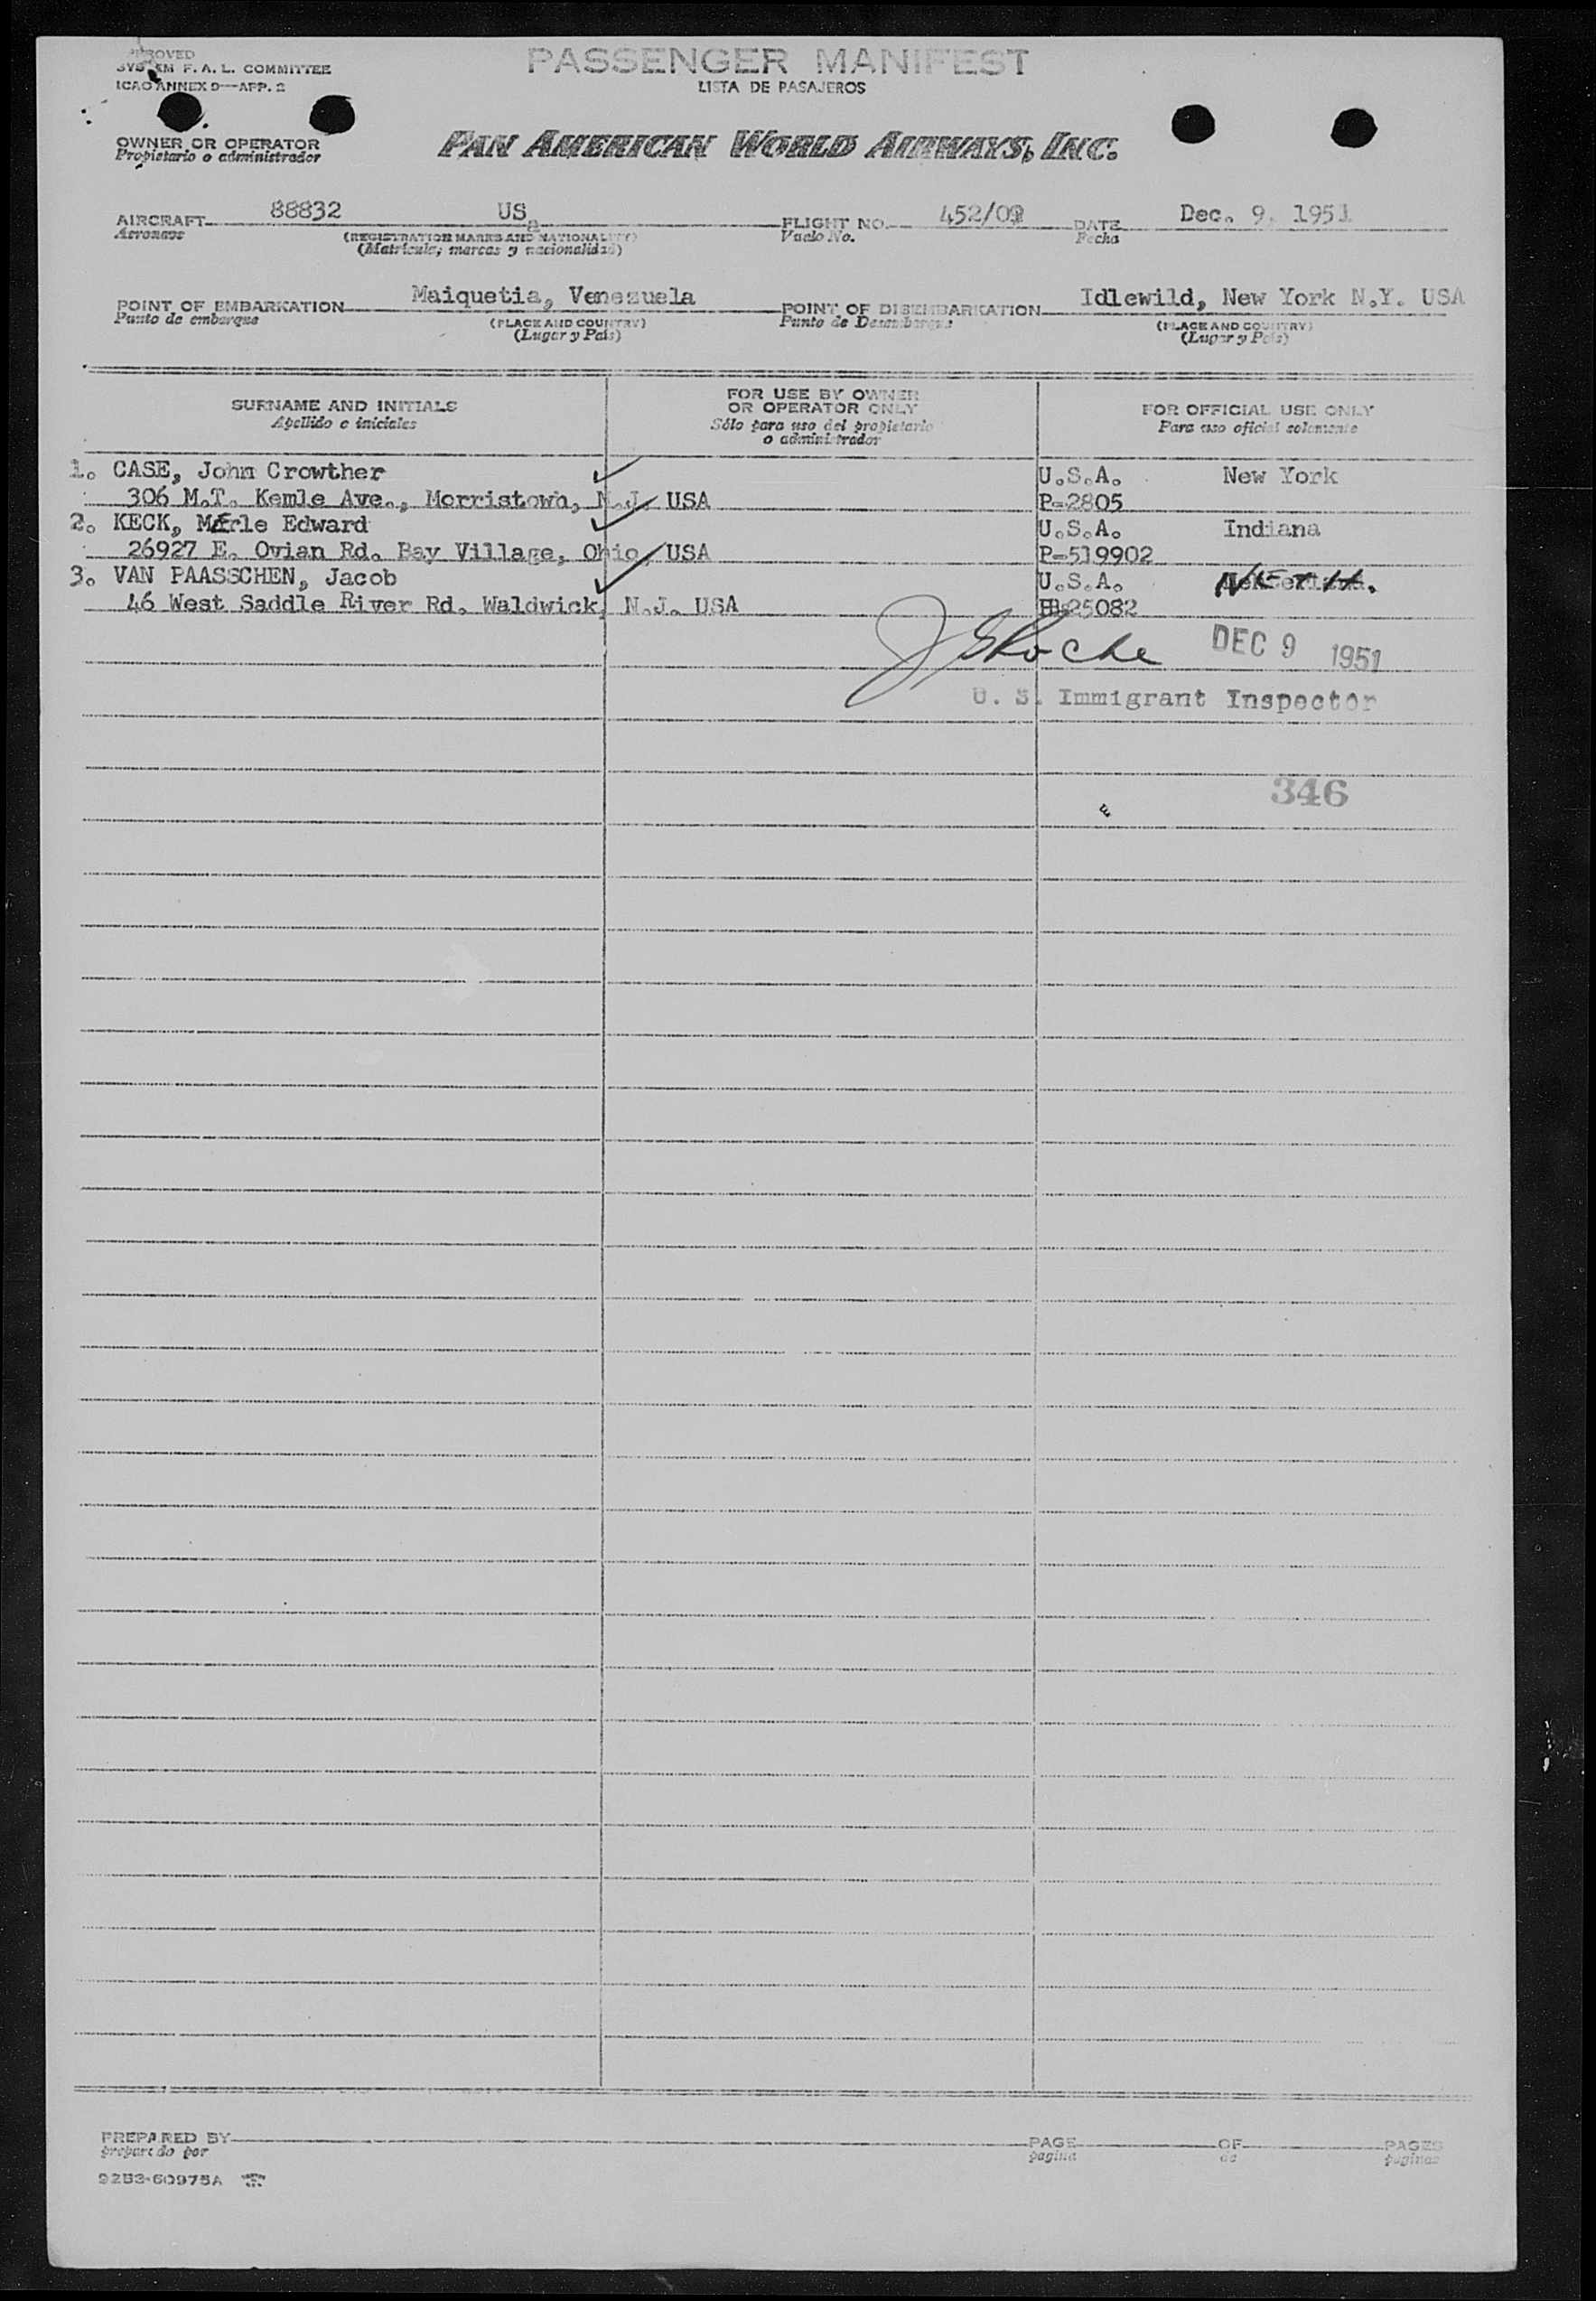 APPROVED
SYSTEM F. A. L. COMMITTEE
ICAO ANNEX 9—APP. 2
PASSENGER MANIFEST
LISTA DE PASAJEROS
OWNER OR OPERATOR
Propietario o administrador
PAN AMERICAN WORLD AIRWAYS, INC.
AIRCRAFT 88832 US. FLIGHT NO. 452/09 DATE Dec. 9, 1951
Aeronave (REGISTRATION MARKS AND NATIONALITY) Vuelo No. Fecha
(Matricula; marcas y nacionalidad)
POINT OF EMBARKATION Maiquetia, Venezuela POINT OF DISEMBARKATION Idlewild, New York N.Y. USA
Punto de embarque (PLACE AND COUNTRY) Punto de Desembarque (PLACE AND COUNTRY)
(Lugar y País) (Lugar y País)
SURNAME AND INITIALS
Apellido e iniciales
FOR USE BY OWNER
OR OPERATOR ONLY
Sólo para uso del propietario
o administrador
FOR OFFICIAL USE ONLY
Para uso oficial solamente
1. CASE, John Crowther U.S.A. New York
306 M.T. Kemle Ave., Morristown, N.J. USA P-2805
2. KECK, Merle Edward U.S.A. Indiana
26927 E. Ovian Rd. Bay Village, Ohio, USA P-519902
3. VAN PAASSCHEN, Jacob U.S.A. NETH.
46 West Saddle River Rd. Waldwick, N.J. USA 25082
J Roche DEC 9 1951
U. S. Immigrant Inspector
346
E
PREPARED BY PAGE OF PAGES
preparado por pagina de páginas
9253-60975A